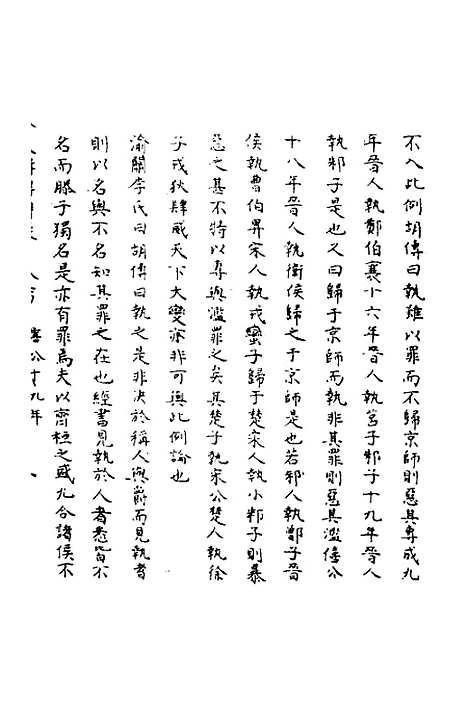 不入此例胡傳曰執雖以罪而不歸京師則惡其專成九
年晉人執鄭伯襄十六年晉人執莒子邾子十九年晉人
執邾子是也又曰歸于京師而執非其罪則惡其濫僖公
十八年晉人執衛侯歸之于京師是也若邾人執鄫子晉
侯執曹伯畀宋人執戎蠻子歸于楚宋人執小邾子則暴
惡之甚不特以專與濫罪之矣其楚子執宋公楚人執徐
子戎狄肆威天下大變亦非可與此例論也
渝關李氏曰胡傳曰執之是非決於稱人與爵而見執者
則以名與不名知其罪之在也經書見執於人者悉皆不
名而滕子獨名是亦有罪焉夫以齊桓之盛九合諸侯不
僖公十九年